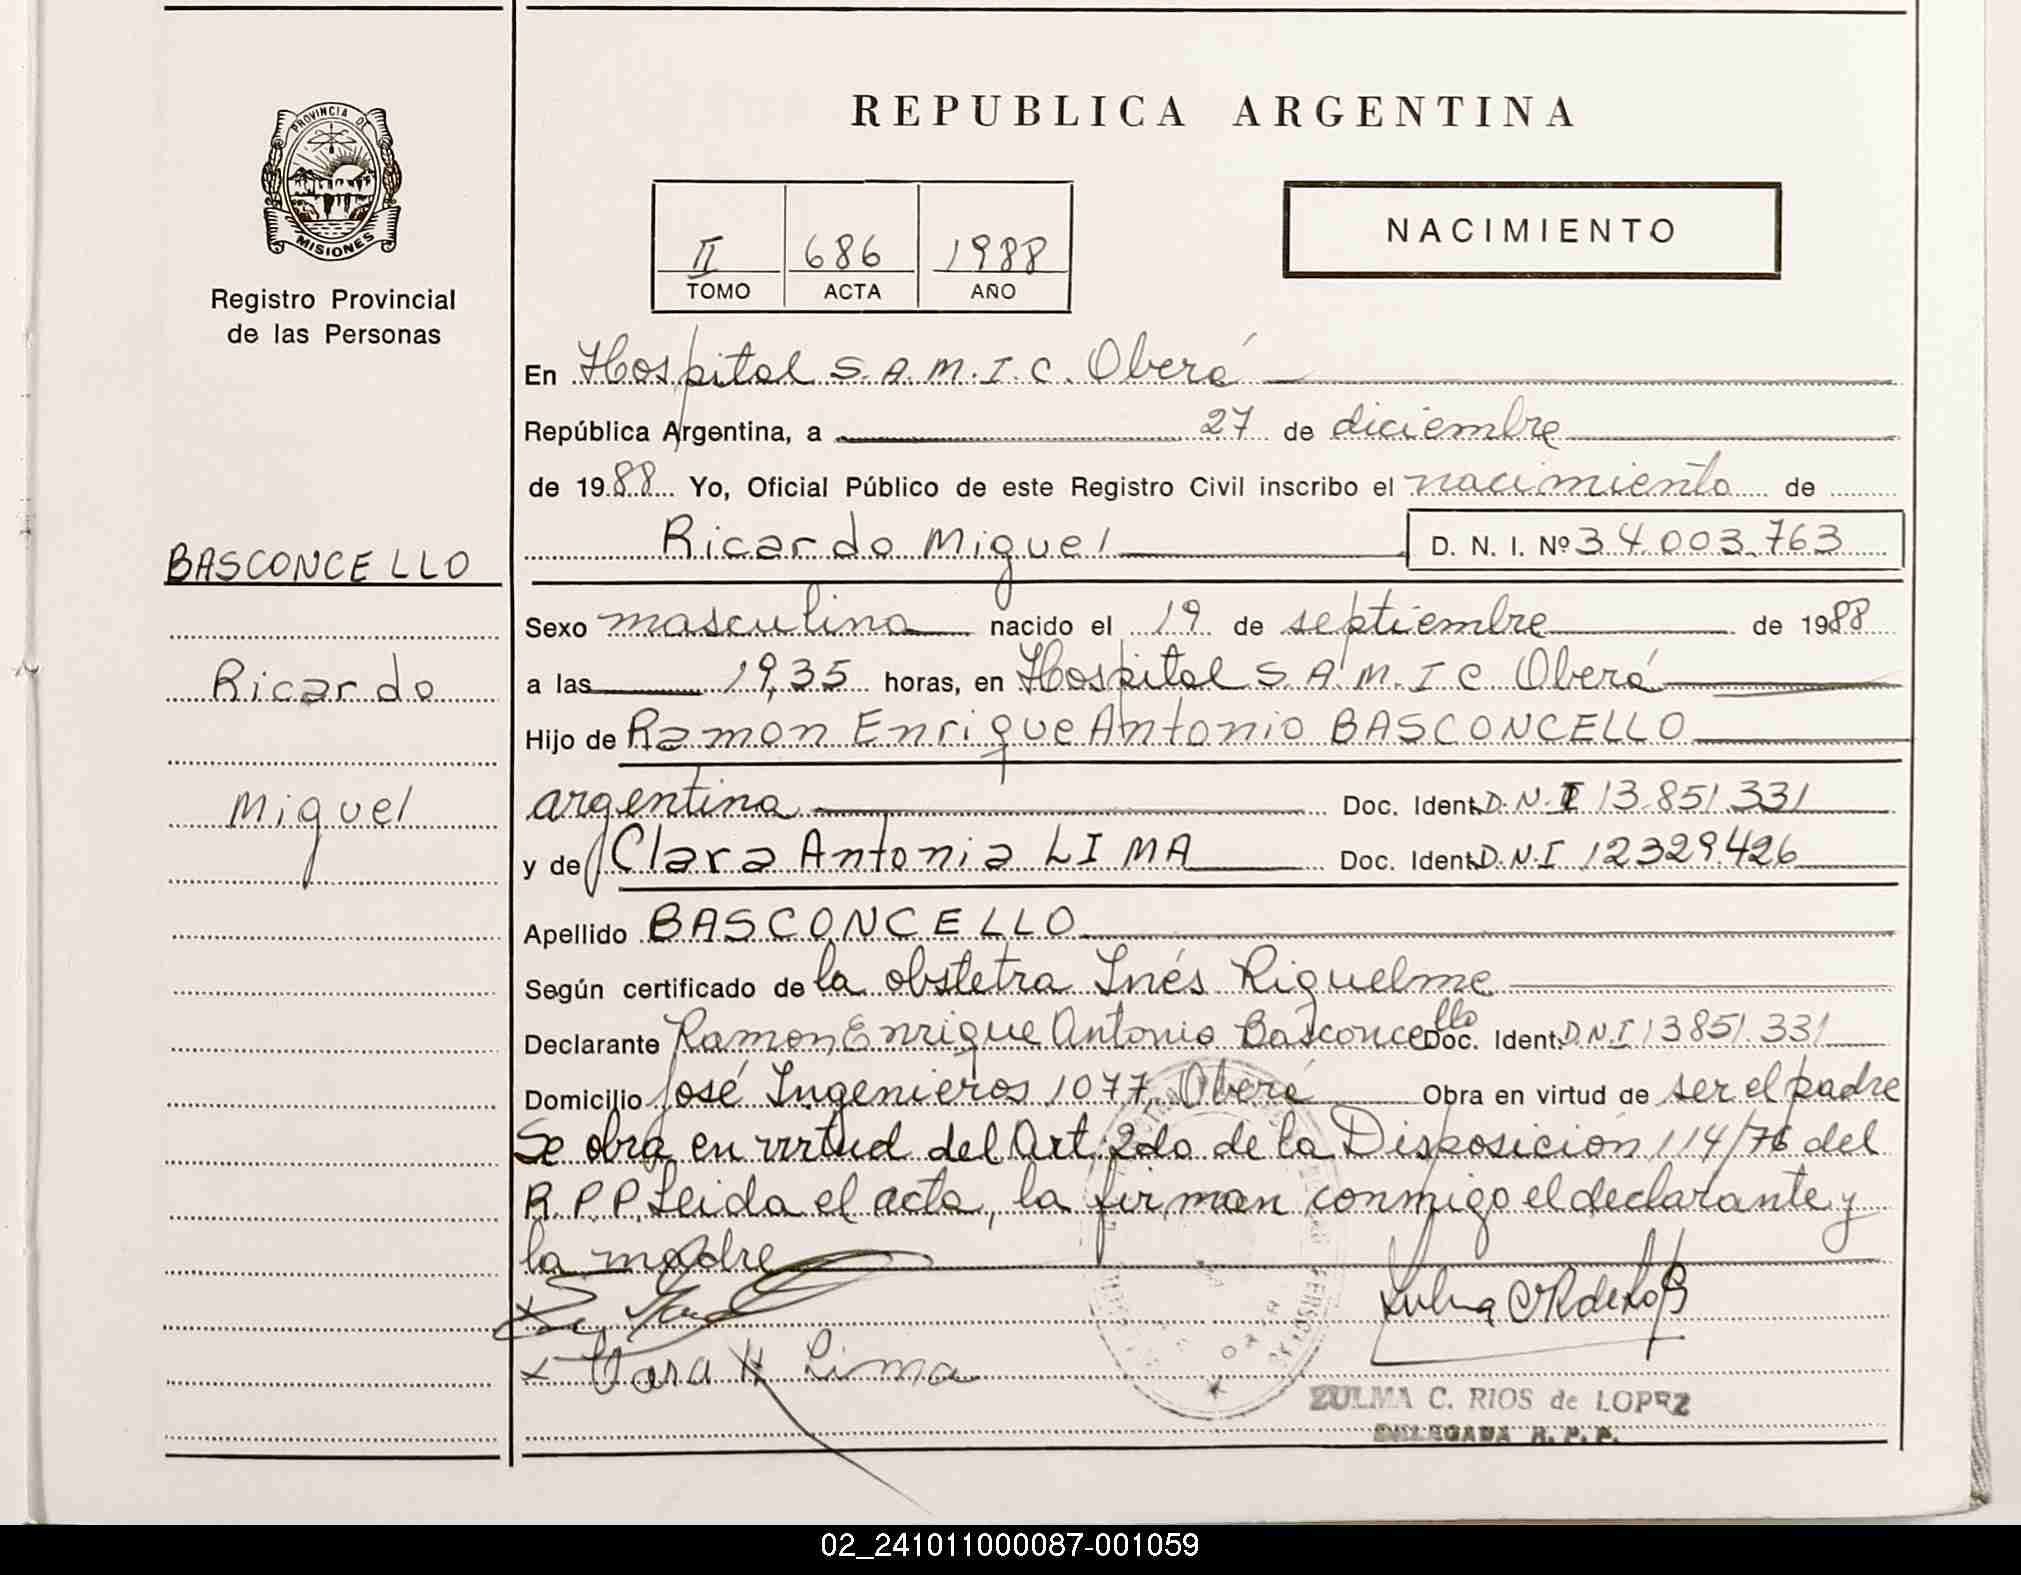 PROVINCIA DE
MISIONES
Registro Provincial
de las Personas
BASCONCELLO
Ricardo
Miguel
REPUBLICA ARGENTINA
II 686 1988
TOMO ACTA AÑO
NACIMIENTO
En Hospital S.A.M.I.C. Oberá
República Argentina, a 27 de diciembre
de 1988 Yo, Oficial Público de este Registro Civil inscribo el nacimiento de
Ricardo Miguel D. N. I. Nº 34.003.763
Sexo masculino nacido el 19 de septiembre de 1988
a las 19,35 horas, en Hospital S.A.M.I.C. Oberá
Hijo de Ramon Enrique Antonio BASCONCELLO
argentino Doc. Ident. D.N.I 13.851.331
y de Clara Antonia LIMA Doc. Ident. D.N.I 12329.426
Apellido BASCONCELLO
Según certificado de la obstetra Inés Riquelme
Declarante Ramon Enrique Antonio Basconcello Doc. Ident. D.N.I 13851.331
Domicilio José Ingenieros 1077 Oberá Obra en virtud de ser el padre
Se obra en virtud del Art. 2do de la Disposición 114/76 del
R.P.P. Leida el acta, la firman conmigo el declarante y
la madre
Lima
ZULMA C. RIOS de LOPEZ
DELEGADA R. P. P.
02_241011000087-001059